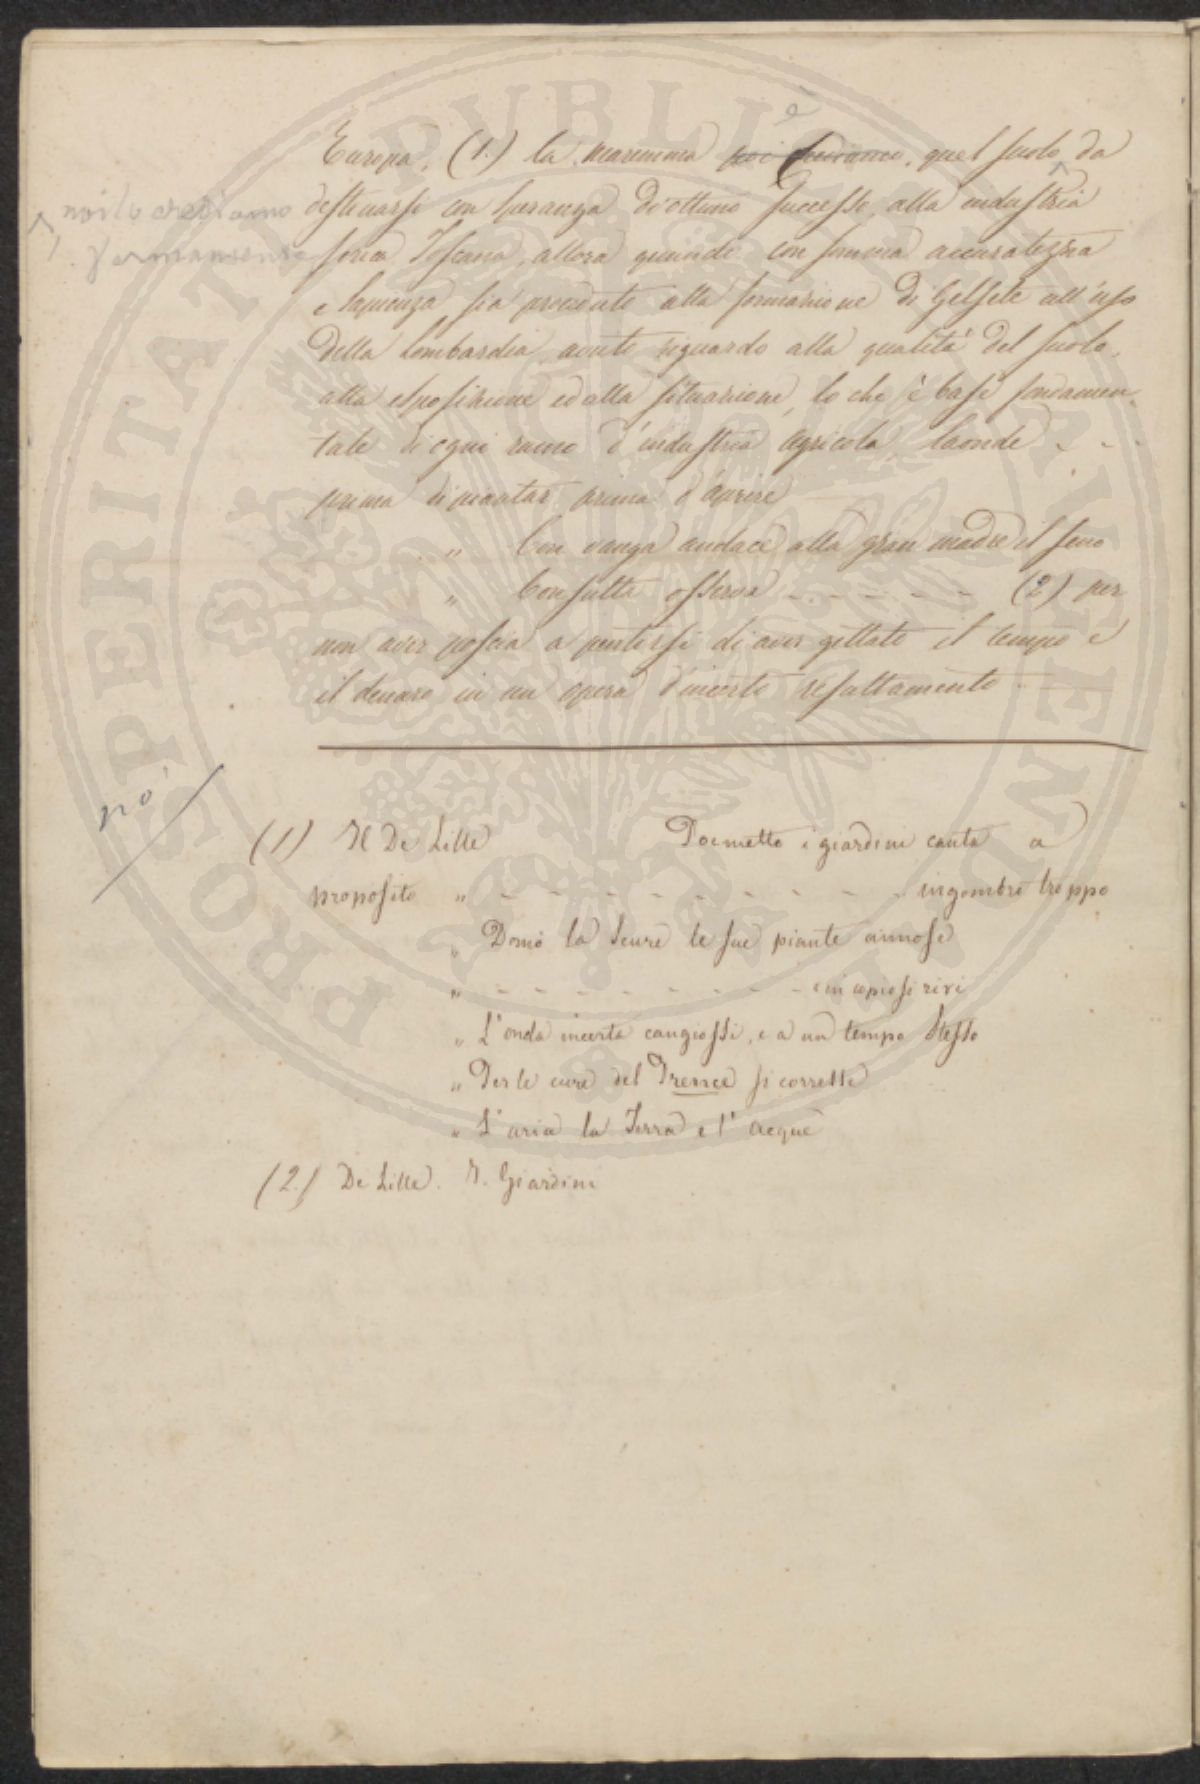 è
Europa, (1.) la maremma poi crediamo, quel suolo da
noi lo crediamo
fermamente
destinarsi con speranza di ottimo successo alla industria
serica Toscana, allora quando con somma accuratezza
e sapienza sia proceduto alla formazione di Gelsete all'uso
della Lombardia avuto riguardo alla qualità del suolo,
alla esposizione ed alla situazione, lo che è base fondamen-
tale di ogni ramo d'industria Agricola, laonde - - -
prima di piantar prima d'aprire
" Con vanga audace alla gran madre il seno
" Consulta osserva - - - - - (2) per
non aver poscia a pentirsi di aver gettato il tempo e
il denaro in un opera d'incerto resultamento.
no
(1) Il De Lille Poemetto i giardini canta a
proposito " - - - - - - - - - - ingombro troppo
" Domò la scure le sue piante annose
" - - - - - - - - e in copiosi rivi
" L'onda incerta cangiossi, e a un tempo stesso
" Per le cure del Prence si corresse
" L'aria la Terra e l'acque
(2.) De Lille. I. Giardini